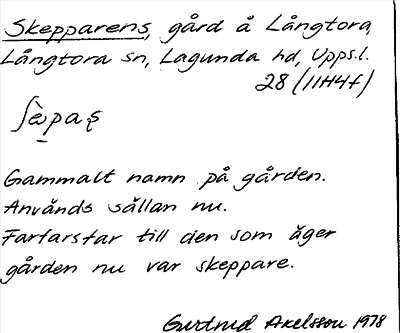 Skepparens, gård å Långtora,
Långtora sn, Lagunda hd, Upps.l.
28 (11H4f)
Gammalt namn på gården.
Används sällan nu.
Farfarsfar till den som äger
gården nu var skeppare.
Gertrud Axelsson 1978